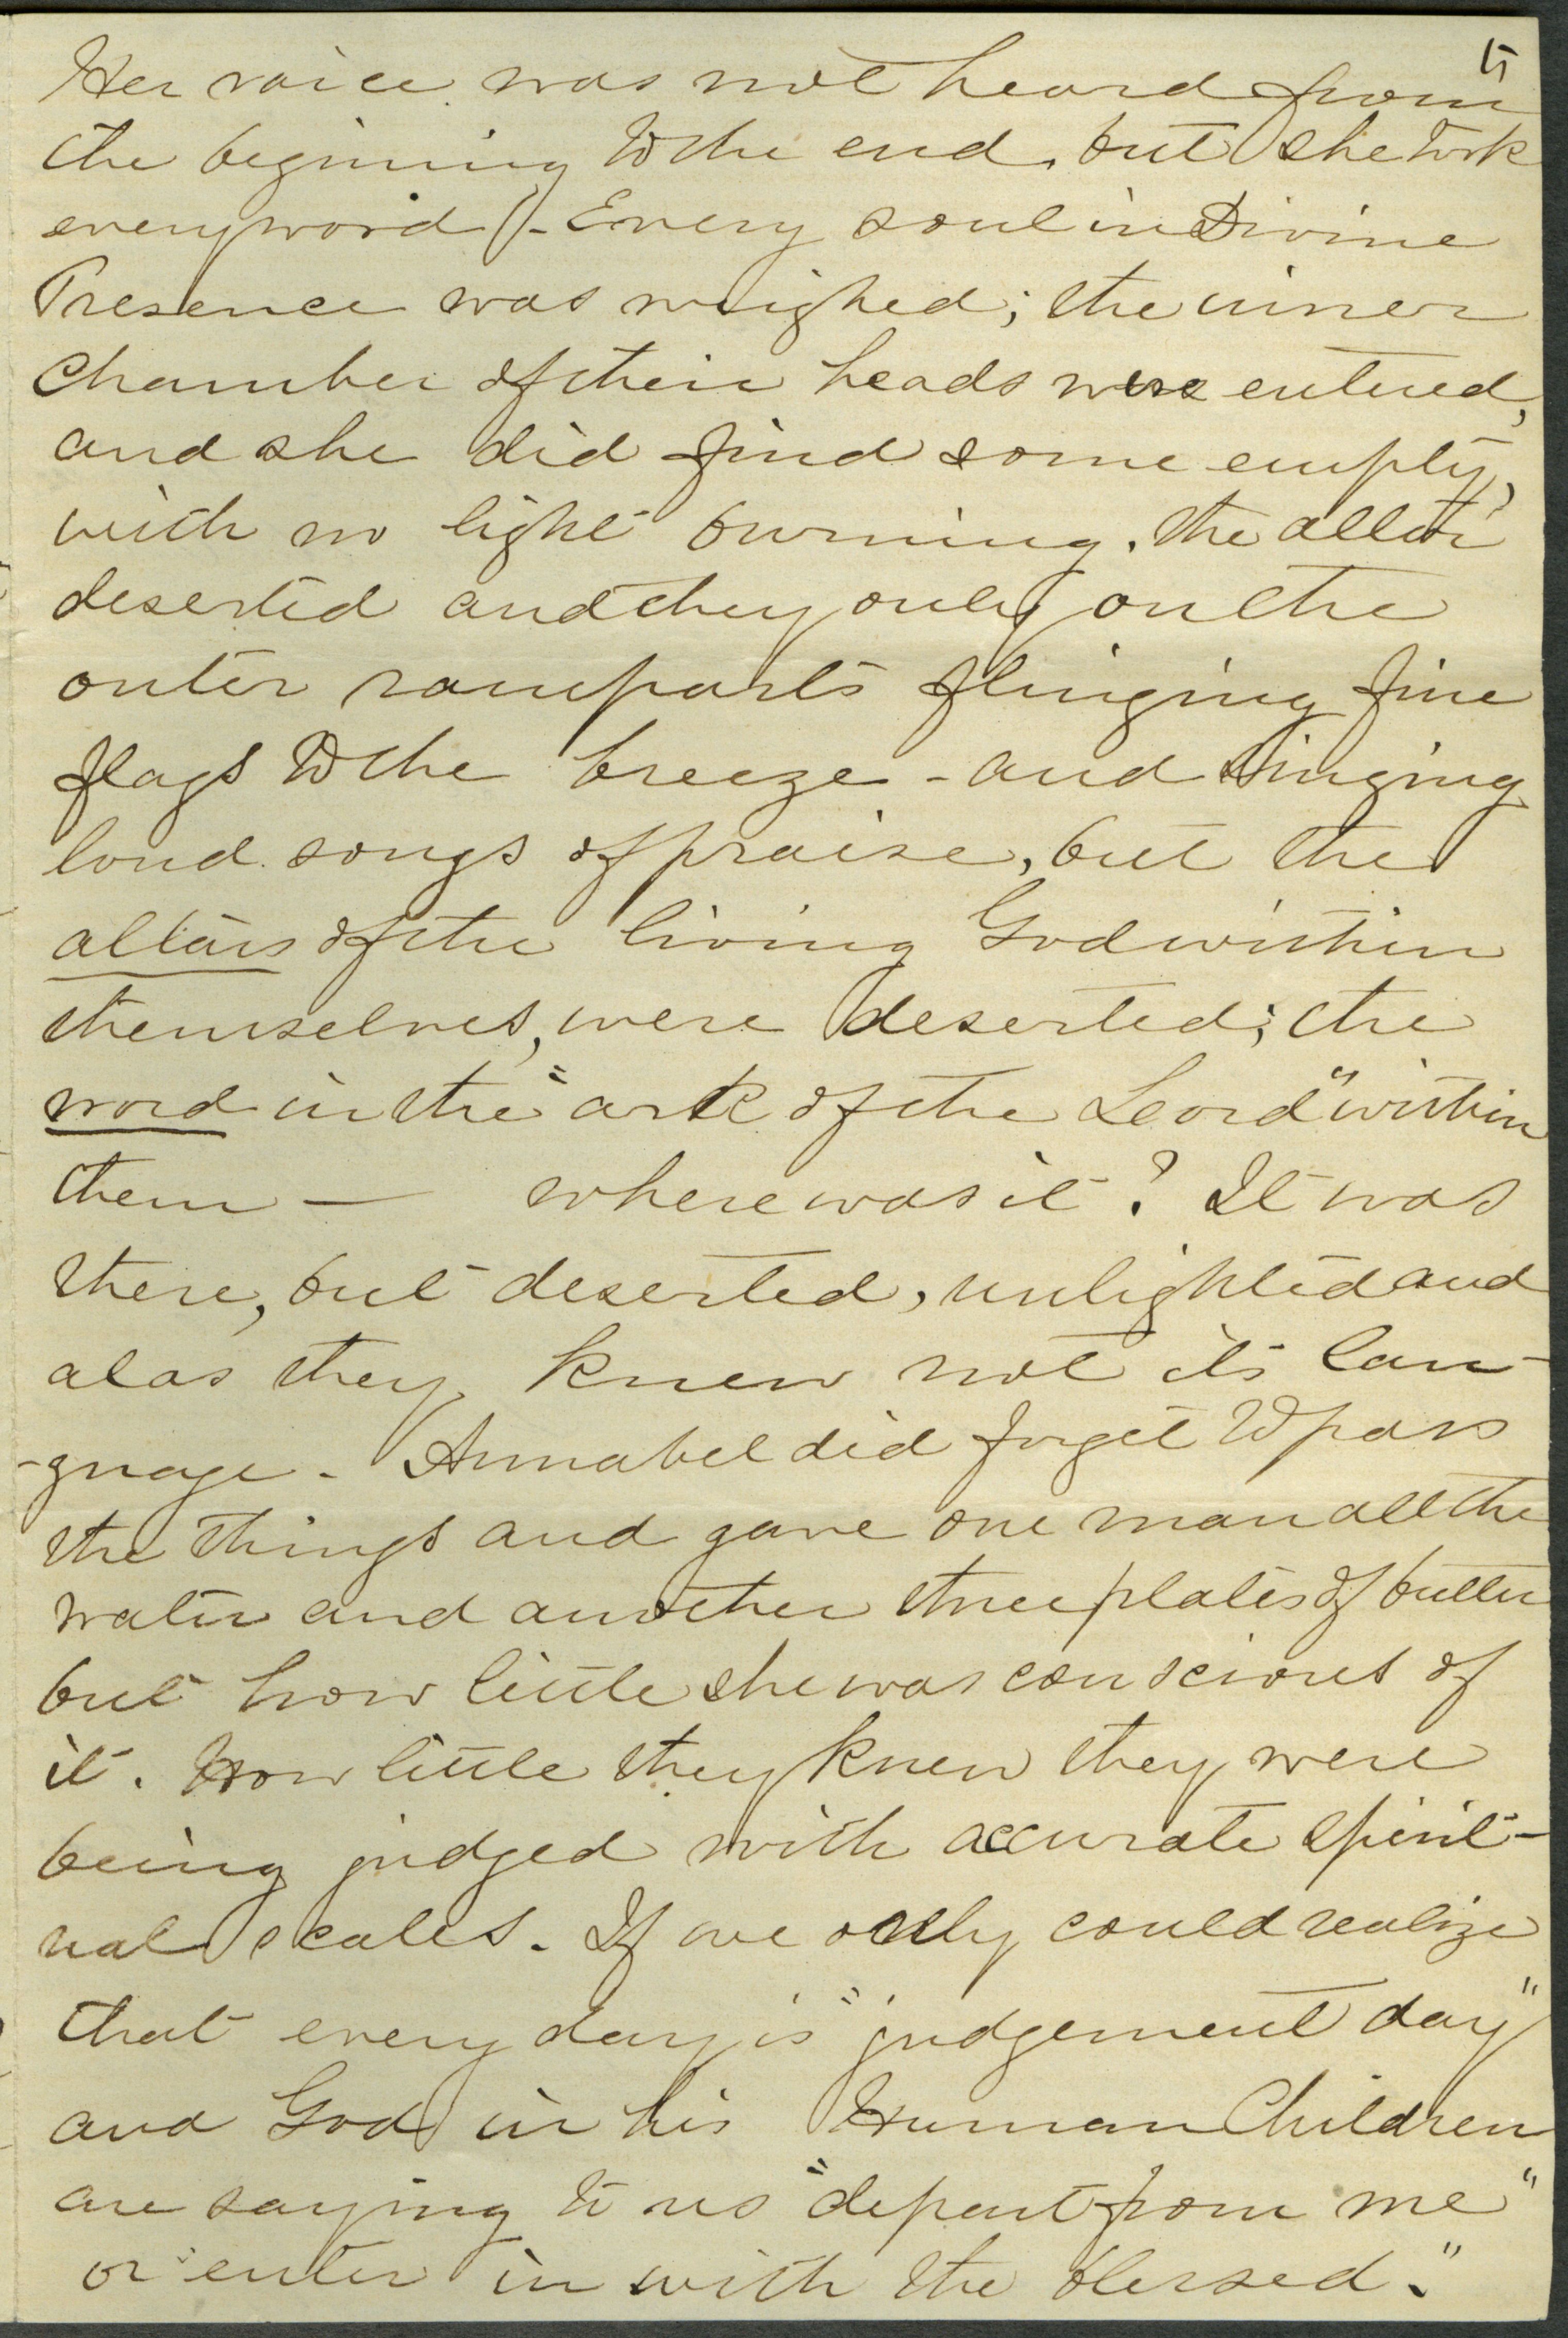 5
Her voice was not heard from
the begining to the end, but she took
every word - Every soul in Divine
Presence was weighed; the inner
chamber of their heads were entered,
and she did find some empty,
with no light burning. the altar
deserted and they only on the
outer ramparts flinging fine
flags to the breeze - and singing
loud songs of praise, but the
altars of the living God within
themselves, were deserted; the
word in the "ark of the Lord" within
them — where was it? It was
there, but deserted, unlighted and
alas they knew not its lan-
-guage. Annabel did forget to pass
the things and gave one man all the
water and another three plates of butter
but how little she was conscious of
it. How little they knew they were
being judged with accurate spirit-
ual scales. If we only could realize
that every day is "judgement day"
and God in his Human Children
are saying to us "depart from me"
or "enter in with the blessed."